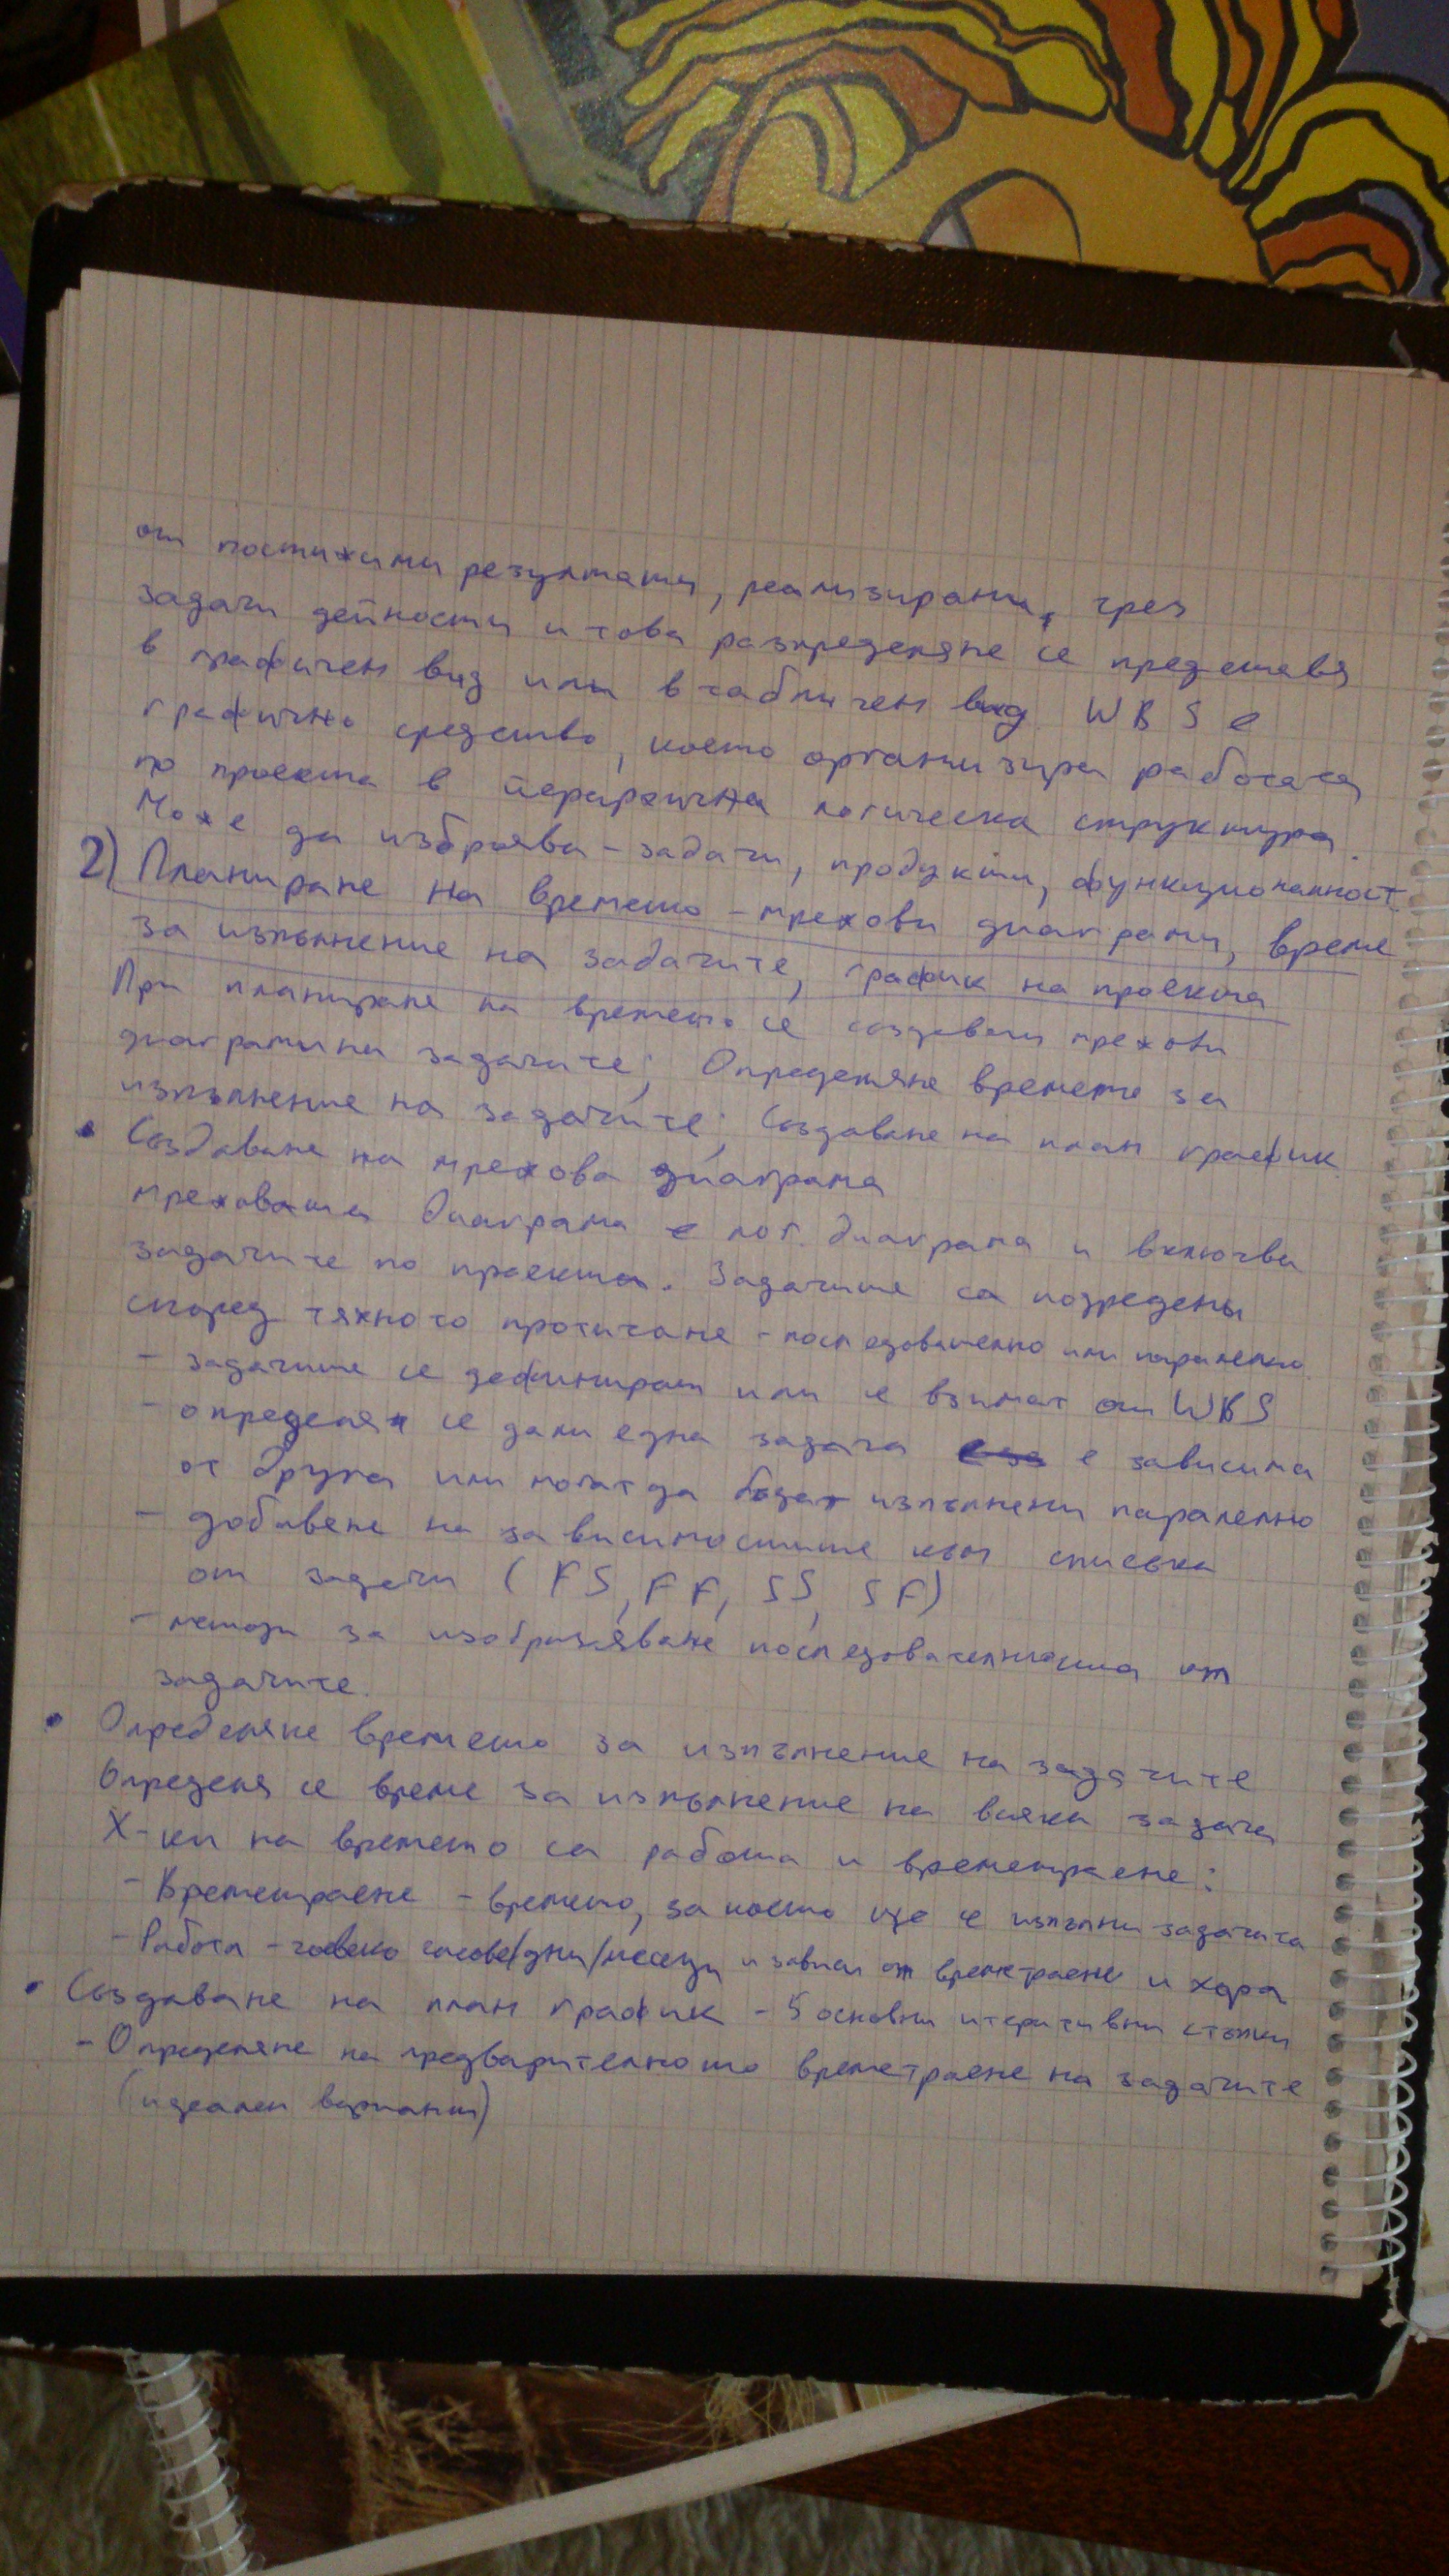 от постижими резултати, реализирани, чрез
задачи дейности и това разпределяне се представя
в графичен вид или в табличен вид. WBS е
графично средство, което организира работата
по проекта в йерархична логическа структура.
Може да изброява - задачи, продукти, функционалност
2) Планиране на времето - мрежови диаграми, време
за изпълнение на задачите, график на проекта
При планиране на времето се създават мрежови
диаграми на задачите; Определяне времето за
изпълнение на задачите; Създаване на план график
• Създаване на мрежова диаграма
мрежовата диаграма е лог. диаграма и включва
задачите по проекта. Задачите са подредени
според тяхното протичане - последователно или паралелно
- задачите се дефинират или се взимат от WBS
- определя се дали една задача е зависима
от друга или могат да бъдат изпълнени паралелно
- добавяне на зависимостите към списъка
от задачи (FS, FF, SS, SF)
- методи за изобразяване последователността от
задачите.
• Определяне времето за изпълнение на задачите
Определя се време за изпълнение на всяка задача
Х-ки на времето са работа и времетраене:
- Времетраене - времето, за което ще се изпълни задачата
- Работа - човеко часове/дни/месеци и зависи от времетраене и хора
• Създаване на план график - 5 основни итеративни стъпки
- Определяне на предварителното времетраене на задачите
(идеален вариант)